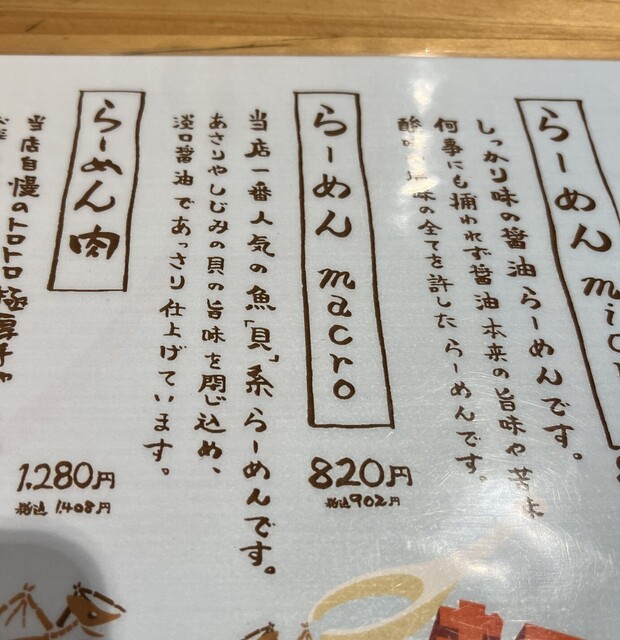 らーめん mic
しっかり味の醤油らーめんです。
何事にも捕われず醤油本来の旨味や苦味
酸味、 味の全てを許したらーめんです。
らーめん macro
820円
税込902円
当店一番人気の魚「貝」系らーめんです。
あさりやしじみの貝の旨味を閉じ込め、
淡口醤油であっさり仕上げています。
らーめん 肉
1,280円
税込1,408円
当店自慢のトロトロ極厚チャ